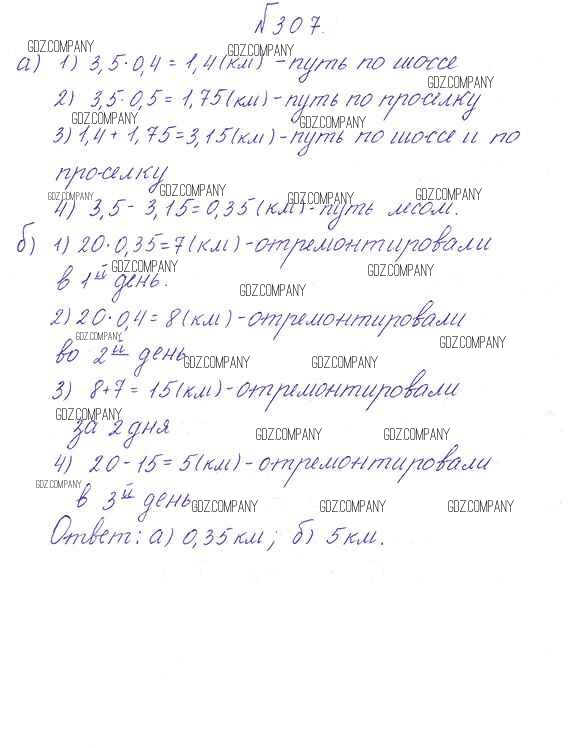 №307.
GDZ.COMPANY GDZ.COMPANY
а) 1) 3,5·0,4=1,4(км) - путь по шоссе
GDZ.COMPANY
2) 3,5·0,5=1,75(км)-путь по проселку
GDZ.COMPANY GDZ.COMPANY
3) 1,4+1,75=3,15(км)-путь по шоссе и по
проселку
GDZ.COMPANY GDZ.COMPANY GDZ.COMPANY GDZ.COMPANY
4) 3,5-3,15=0,35(км)-путь лесом.
б) 1) 20·0,35=7(км)-отремонтировали
GDZ.COMPANY GDZ.COMPANY
в 1й день.
GDZ.COMPANY
2) 20·0,4=8(км)-отремонтировали
GDZ.COMPANY GDZ.COMPANY
во 2й день
GDZ.COMPANY GDZ.COMPANY
3) 8+7=15(км)-отремонтировали
GDZ.COMPANY
за 2 дня
GDZ.COMPANY GDZ.COMPANY
4) 20-15=5(км)-отремонтировали
GDZ.COMPANY
в 3й день
GDZ.COMPANY GDZ.COMPANY GDZ.COMPANY
Ответ: а) 0,35км; б) 5км.